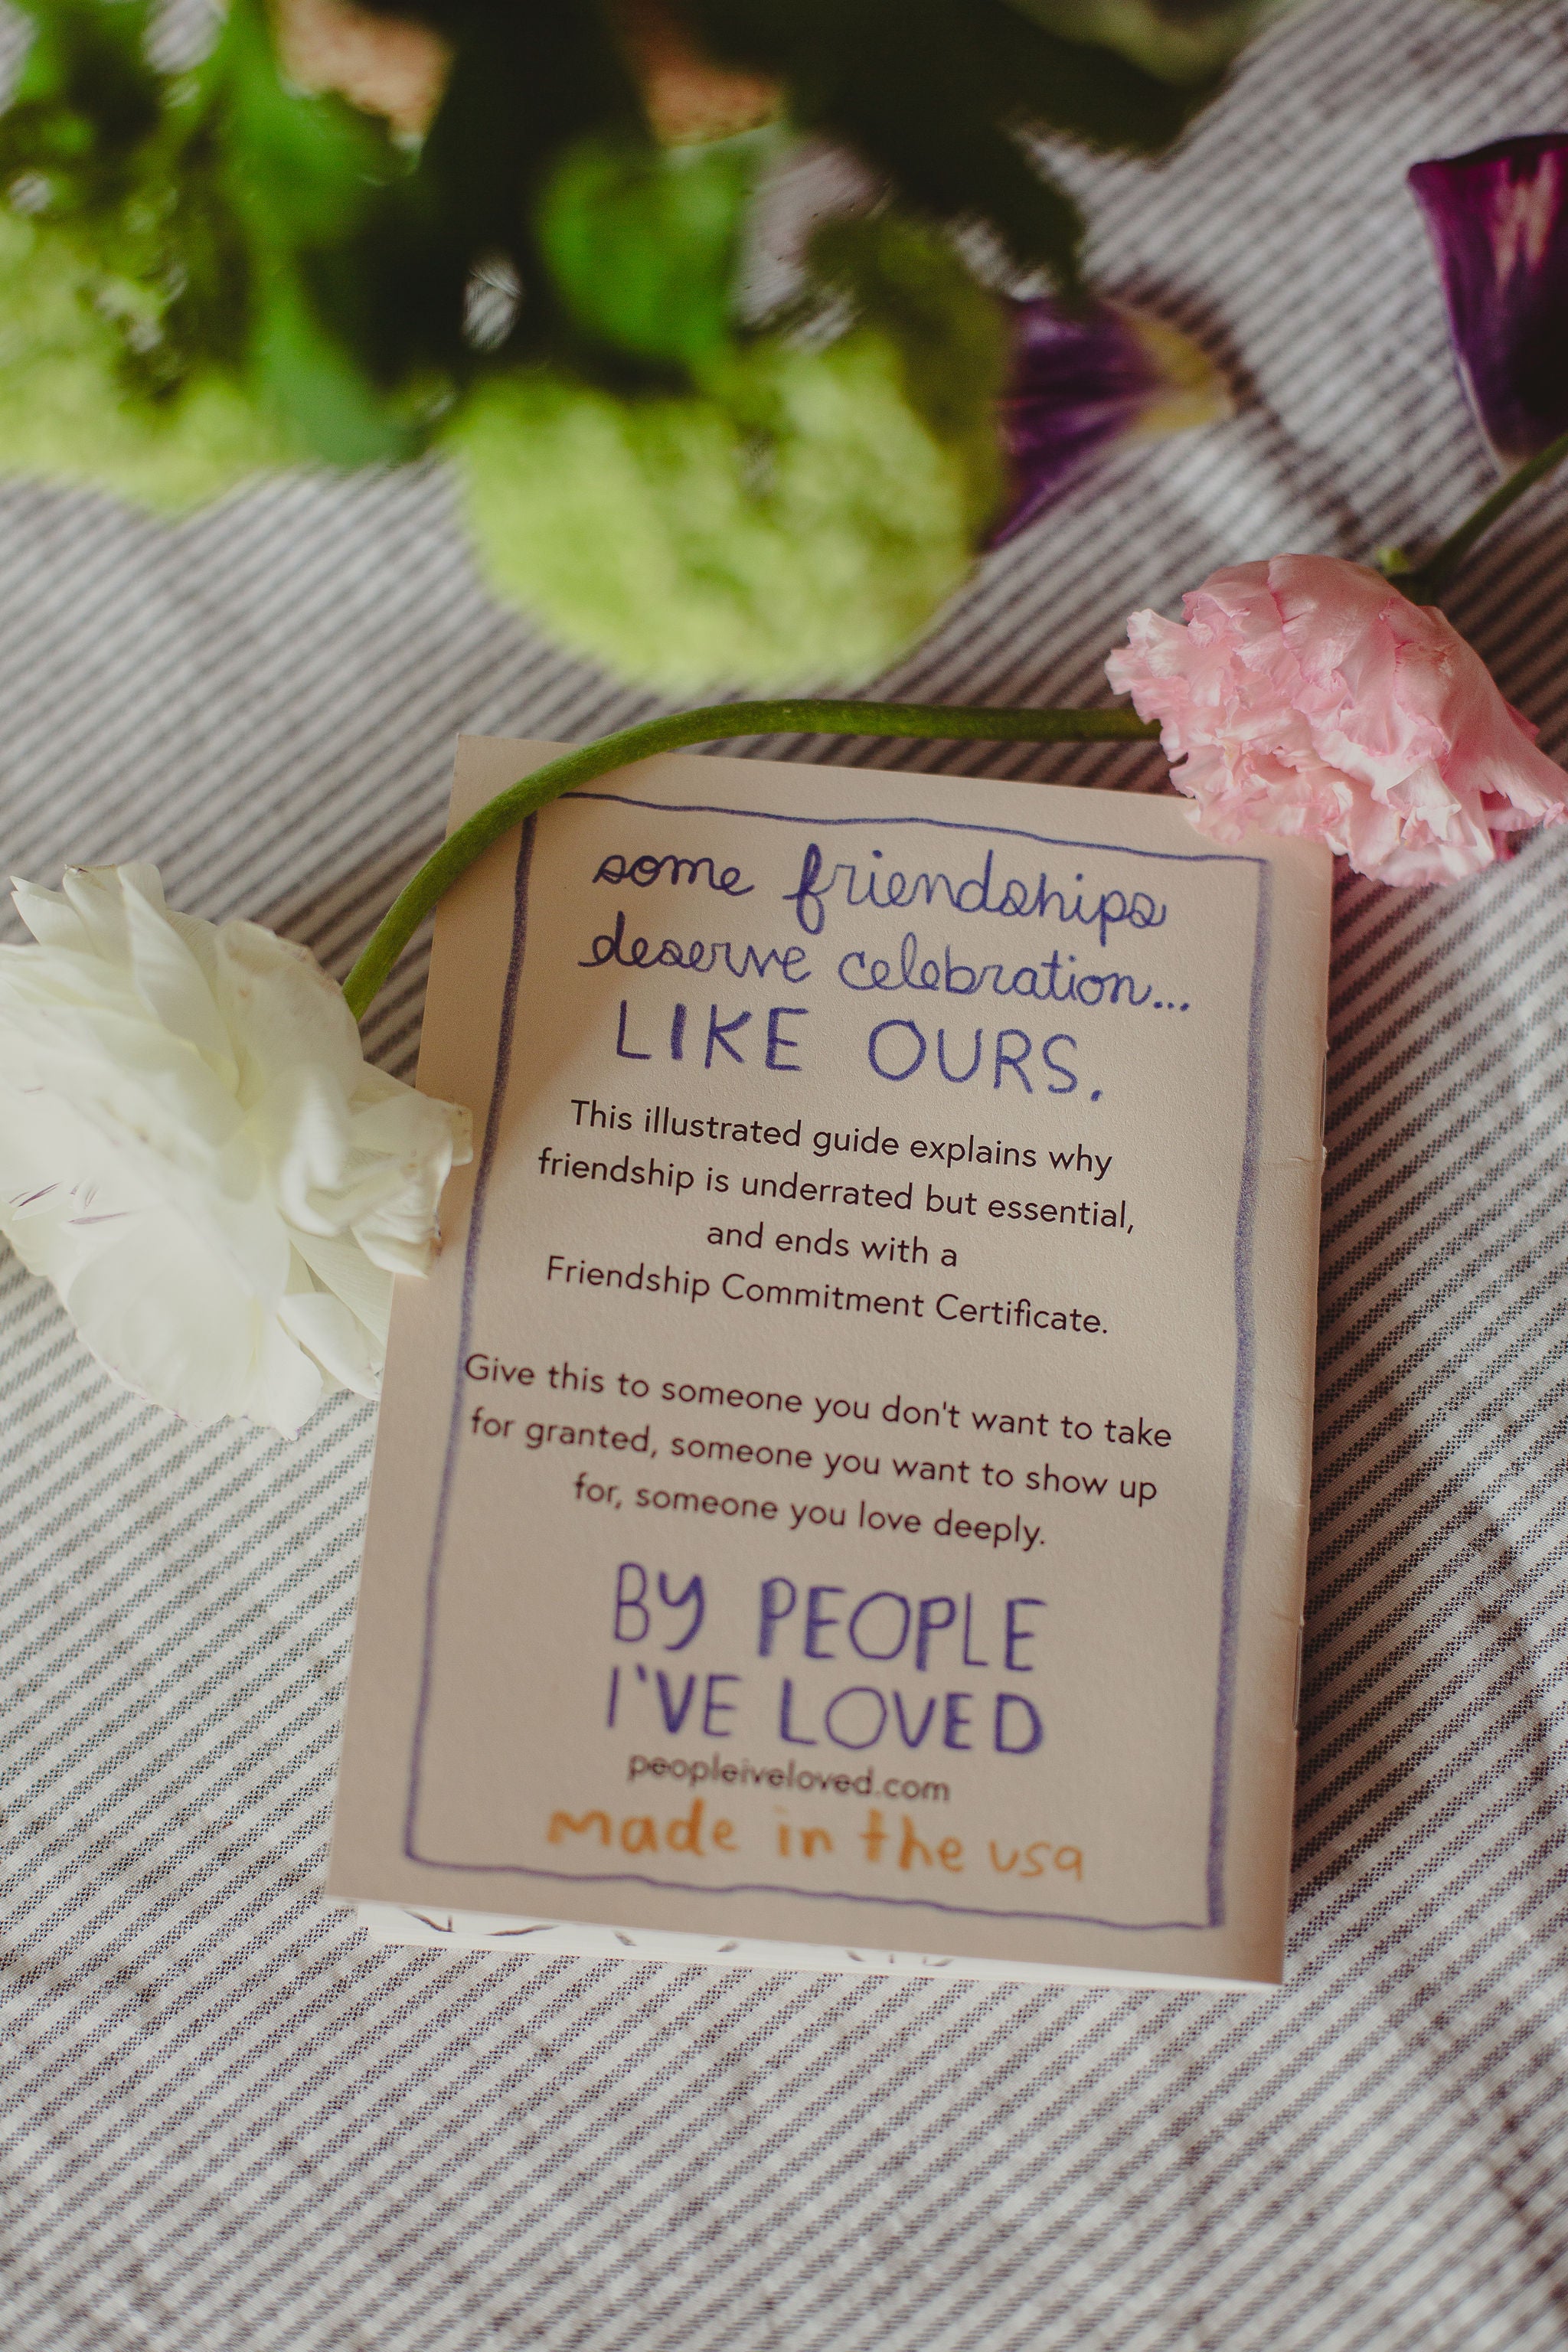 some friendships
deserve celebration...
LIKE OURS.
This illustrated guide explains why
friendship is underrated but essential,
and ends with a
Friendship Commitment Certificate.
Give this to someone you don't want to take
for granted, someone you want to show up
for, someone you love deeply.
By PEOPLE
I'VE LOVED
peopleiveloved.com
made in the usa